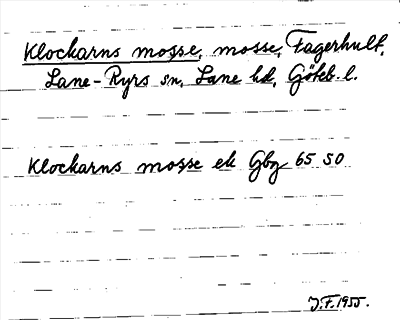 Klockarns mosse, mosse, Fagerhult,
Lane-Ryrs sn, Lane hd, Göteb. l.
Klockarns mosse ek Gbg 65 SO
J.F. 1955.